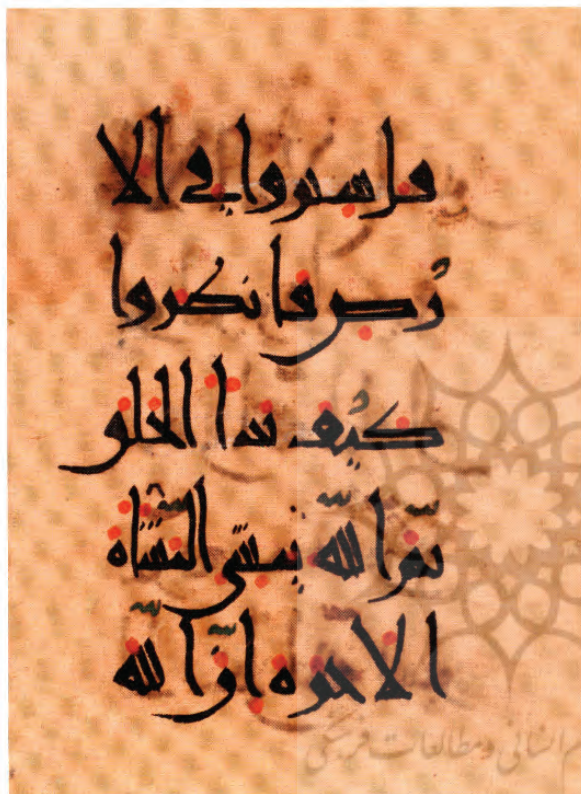 قل سيروا في الا
رض فانظروا
كيف بدا الخلق
ثمّ اللّه ينشئ النّشاة
الاخرة انّ اللّه
م انسانی و مطالعات فرهنگی